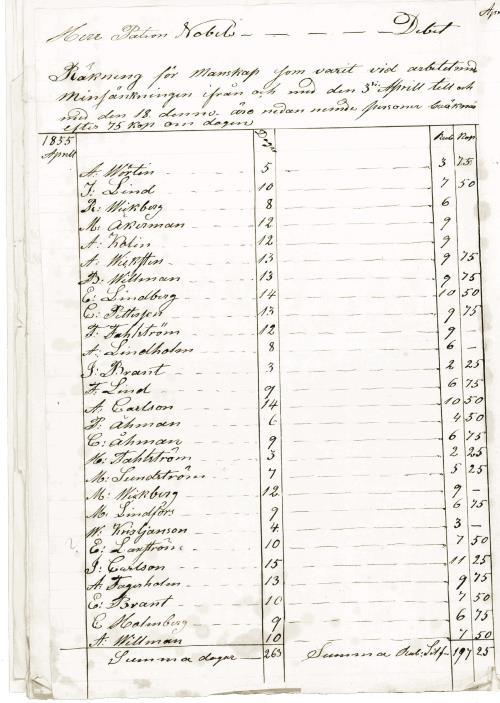 Herr Patron Nobels — — — — Debet
Räkning för Manskap som varit vid arbetet med
Minsänkningen ifrån och med den 3die Aprill till och
med den 18 denna. äro nedan nemde personer beräknad
efter 75 Kop om dagen
1855 Dagar Rub Kop
Aprill
A: Wörtin 5 3 75
J: Lind 10 7 50
R: Wickberg 8 6
M: Åkerman 12 9
A: Kolin 12 9
A: 13 9 75
B: Willman 13 9 75
E: Lindberg 14 10 50
C: Pettersen 13 9 75
F: Fahlström 12 9 —
A: Lindholm 8 6 —
J: Brant 3 2 25
F: Lind 9 6 75
A: Carlson 14 10 50
P: Åhman 6 4 50
C: Åhman 9 6 75
H: Fahlström 3 2 25
M: Sundström 7 5 25
M: Wickberg 12 9 —
M: Lindfors 9 6 75
W: Kristjanson 4 3 —
E: Lanström 10 7 50
J: Carlson 15 11 25
A: Fagerholm 13 9 75
E: Brant 10 7 50
C Holmberg 9 6 75
A: Willman 10 7 50
Summa dagar — 263 Summa Rub: Silf— 197 25